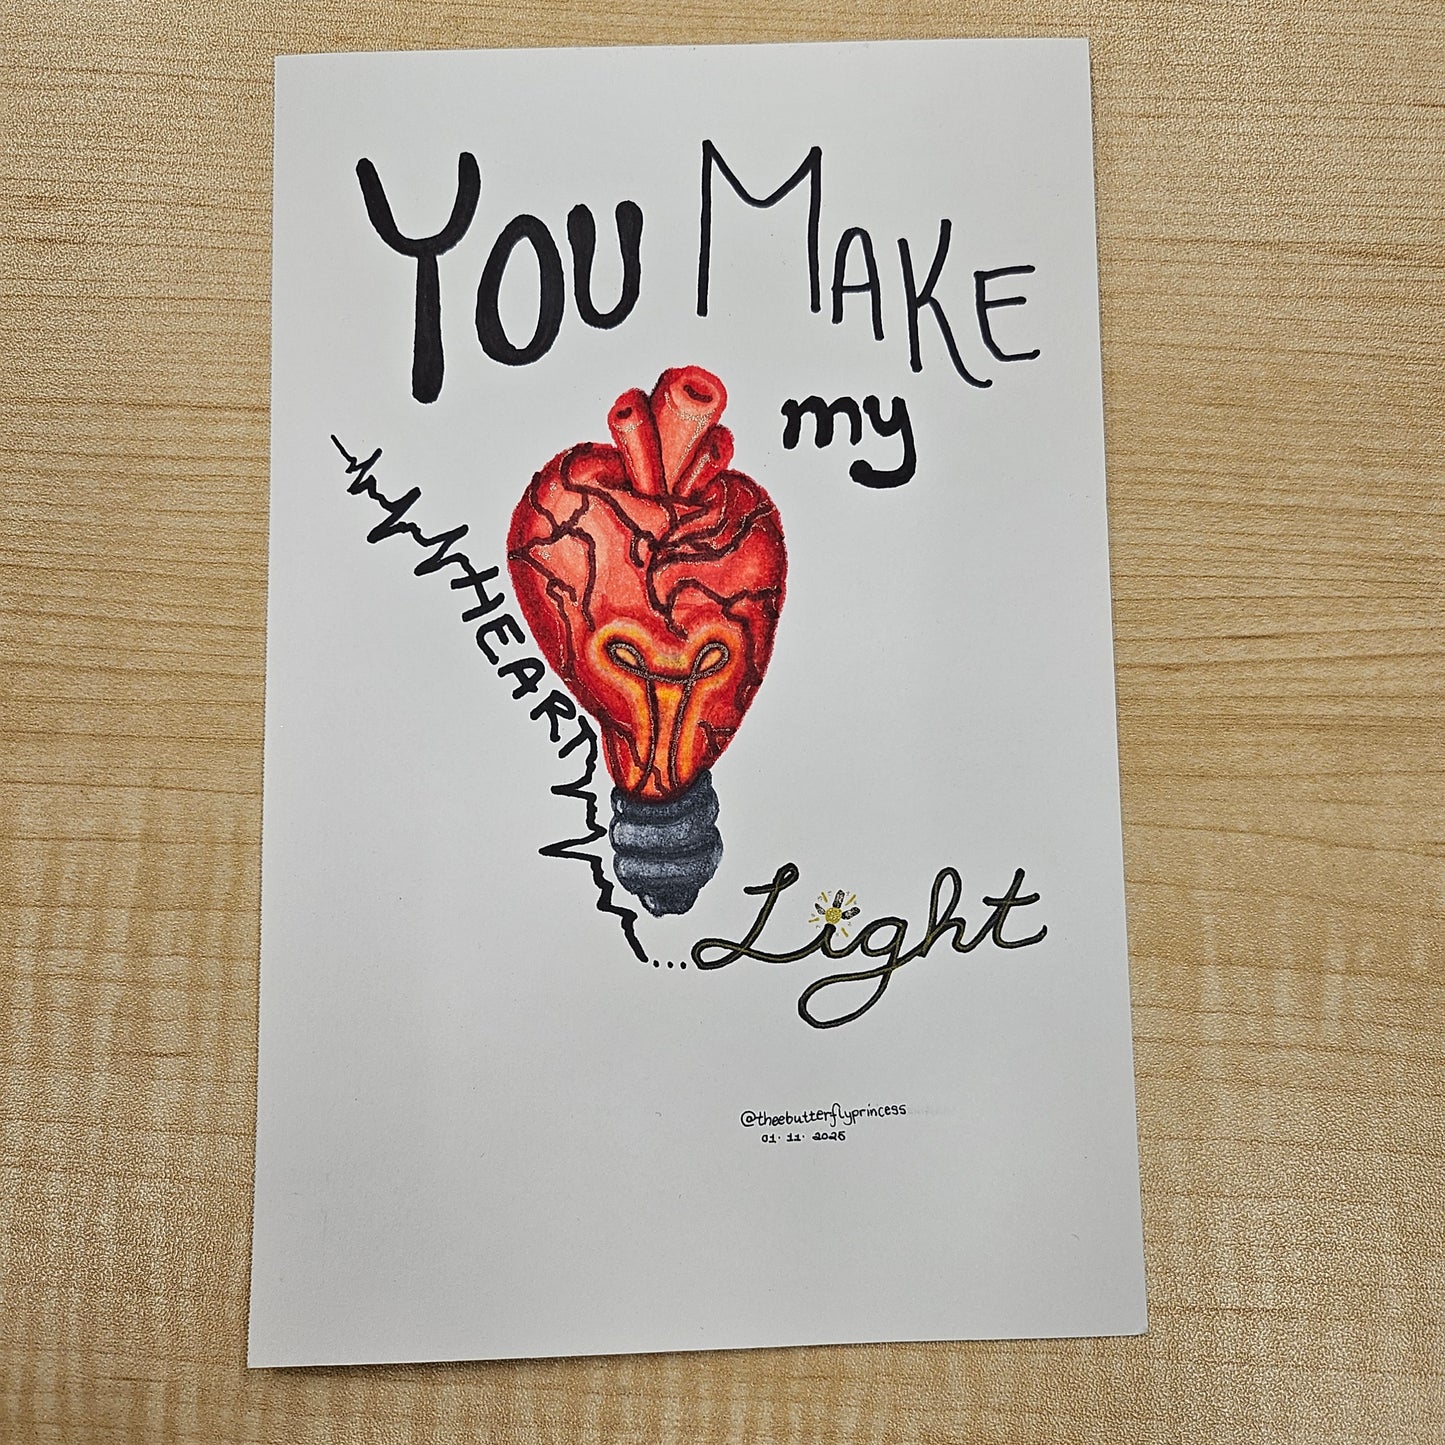 YOU MAKE
my
HEART
...Light
@theebutterflyprincess
01.11.2025